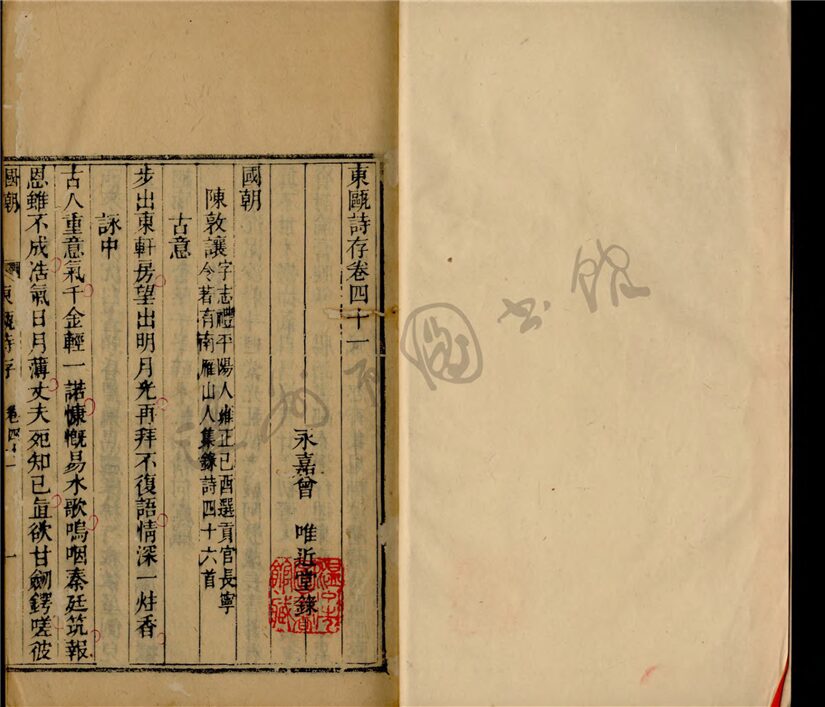 東甌詩存卷四十一
永嘉曾 唯近堂錄
國朝
陳敦讓字志禮平陽人雍正己酉選貢官長寧
令著有南雁山人集錄詩四十六首
古意
步出東軒房望出明月光再拜不復語情深一炷香
詠中
古人重意氣千金輕一諾慷慨易水歌嗚咽秦廷筑報
恩雖不成浩氣日月薄丈夫死知已直欲甘劒鍔嗟彼
國朝 東甌詩存 卷四十一 一
圖書館